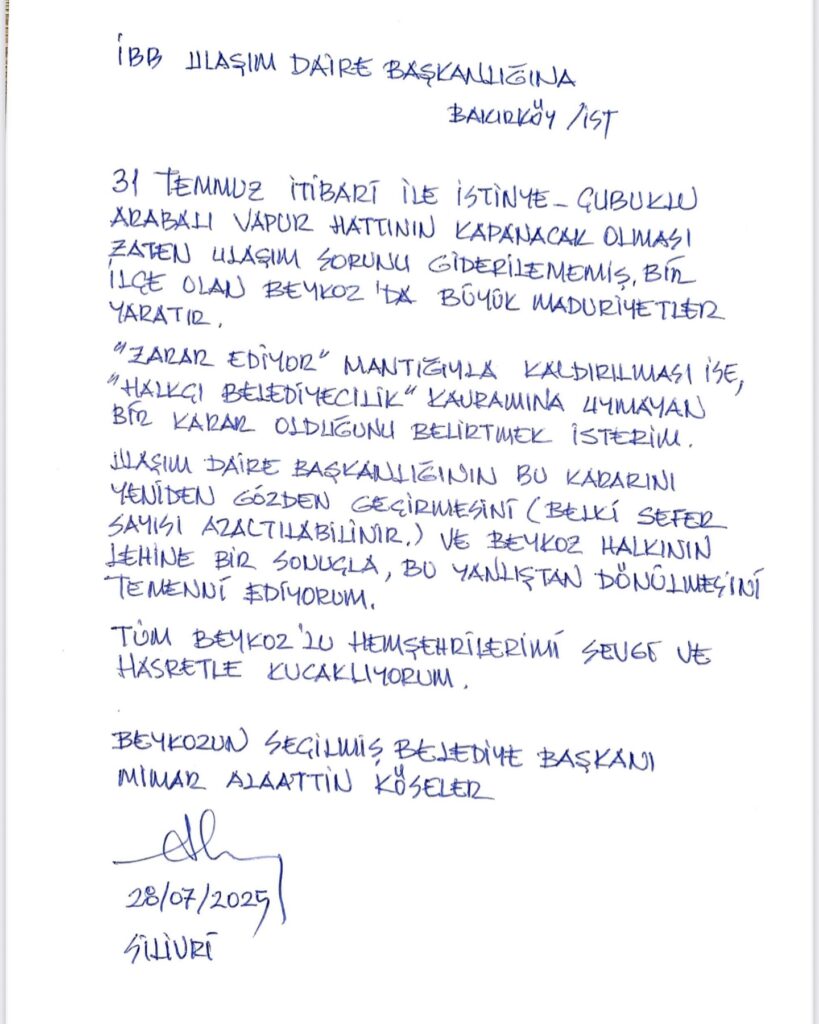 İBB ULAŞIM DAİRE BAŞKANLIĞINA
BAKIRKÖY /İST
31 TEMMUZ İTİBARİ İLE İSTİNYE - ÇUBUKLU
ARABALI VAPUR HATTININ KAPANACAK OLMASI
ZATEN ULAŞIM SORUNU GİDERİLEMEMİŞ, BİR
İLÇE OLAN BEYKOZ'DA BÜYÜK MADURİYETLER
YARATIR.
"ZARAR EDİYOR" MANTIĞIYLA KALDIRILMASI İSE,
"HALKÇI BELEDİYECİLİK" KAVRAMINA UYMAYAN
BİR KARAR OLDUĞUNU BELİRTMEK İSTERİM.
ULAŞIM DAİRE BAŞKANLIĞININ BU KARARINI
YENİDEN GÖZDEN GEÇİRMESİNİ (BELKİ SEFER
SAYISI AZALTILABİLİNİR.) VE BEYKOZ HALKININ
LEHİNE BİR SONUÇLA, BU YANLIŞTAN DÖNÜLMESİNİ
TEMENNİ EDİYORUM.
TÜM BEYKOZ'LU HEMŞEHRİLERİMİ SEVGİ VE
HASRETLE KUCAKLIYORUM.
BEYKOZUN SEÇİLMİŞ BELEDİYE BAŞKANI
MİMAR ALAATTİN KÖSELER
28/07/2025
SİLİVRİ